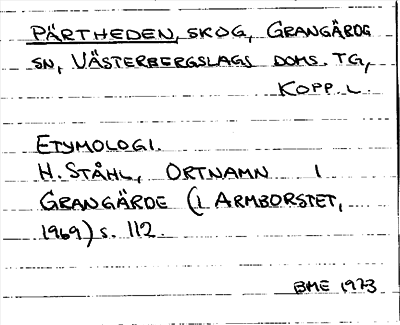 PÄRTHEDEN, SKOG, GRANGÄRDE
SN, VÄSTERBERGSLAGS DOMS. TG,
KOPP. L.
ETYMOLOGI.
H. STÅHL, ORTNAMN I
GRANGÄRDE (I ARMBORSTET,
1969) s. 112.
BME 1973